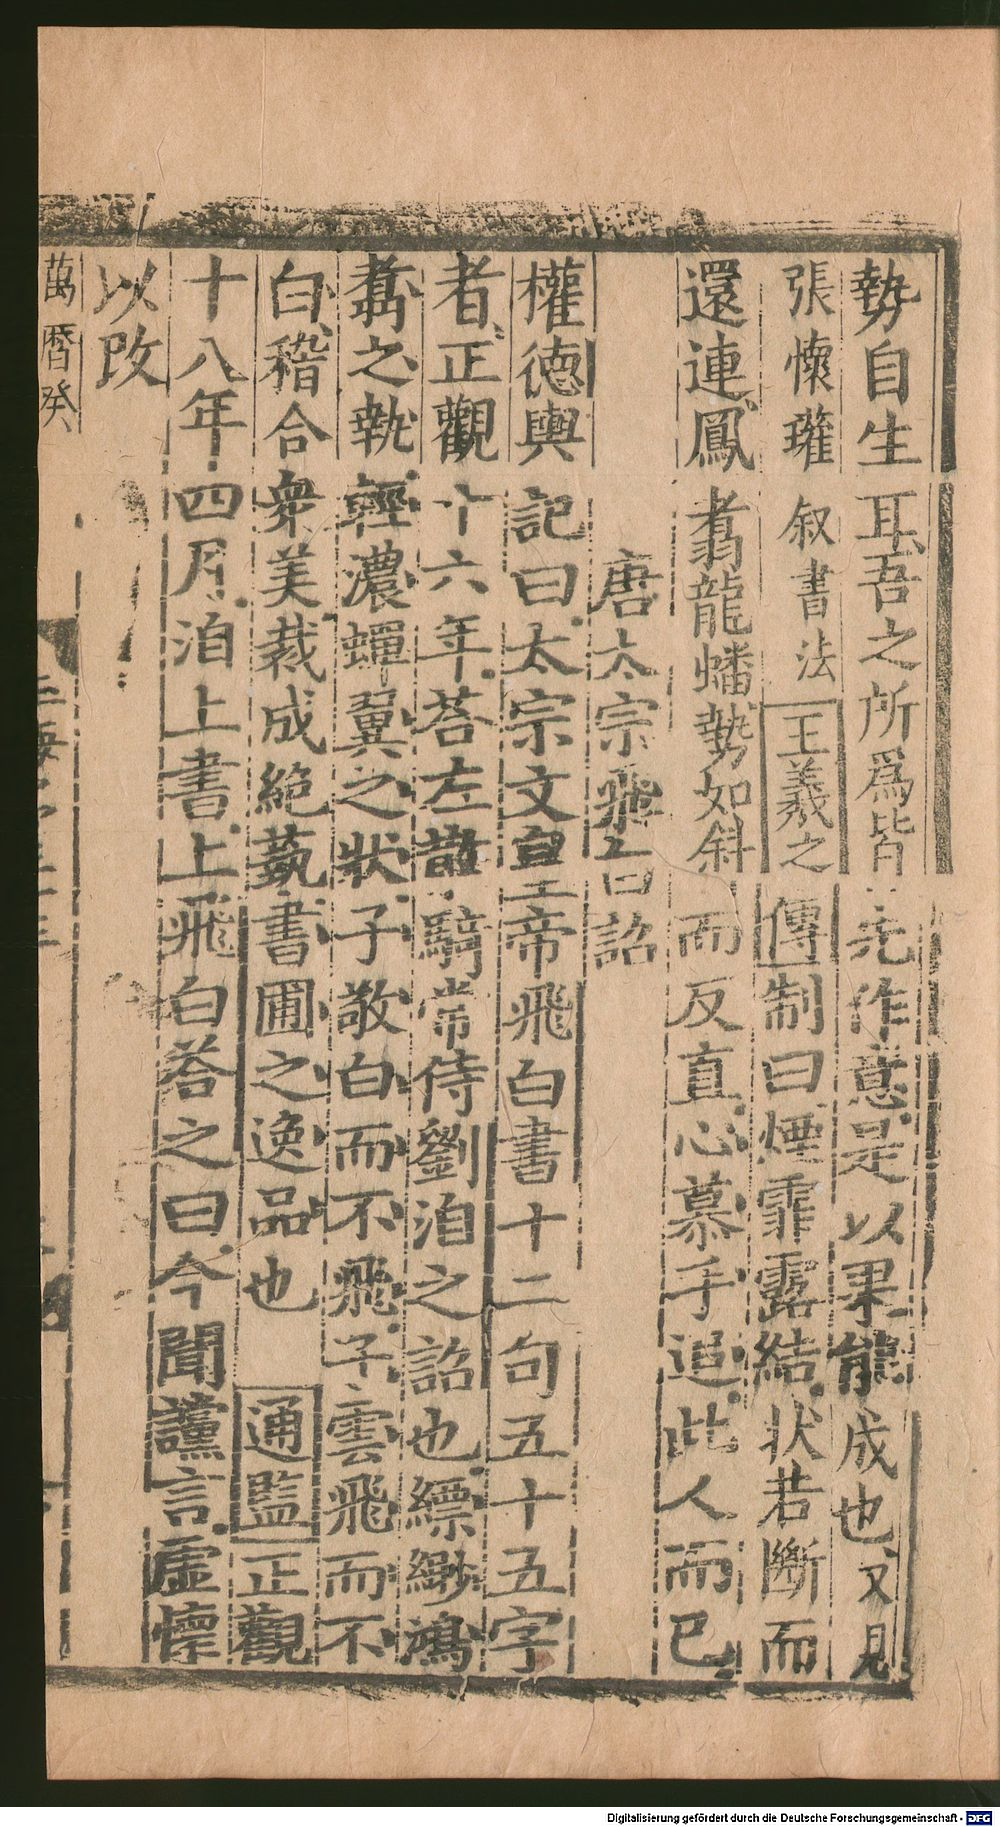 勢自生耳吾之所爲皆先作意是以果能成也又見
張懷瓘叙書法王羲之傳制曰煙霏露結狀若斷而
還連鳳翥龍蟠勢如斜而反直心慕手追此人而已
唐太宗飛白詔
權德輿記曰太宗文皇帝飛白書十二句五十五字
者正觀十六年荅左散騎常侍劉洎之詔也縹緲鴻
翥之執輕濃蟬翼之狀子敬白而不飛子雲飛而不
白稽合衆美裁成絶藝書圃之逸品也通監正觀
十八年四月洎上書上飛白荅之曰今聞讜言虛懷
以改
萬曆癸
Digitalisierung gefördert durch die Deutsche Forschungsgemeinschaft - DFG